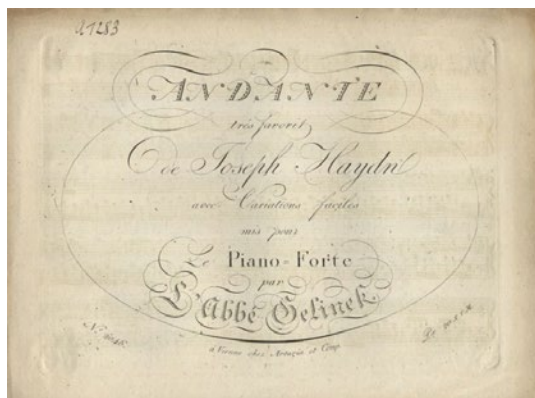 ANDANTE
très favorit
de Joseph Haydn
avec Variations faciles
mis pour
Le Piano-Forte
par
L'Abbé Gelinek
à Vienne chez Artaria et Comp.